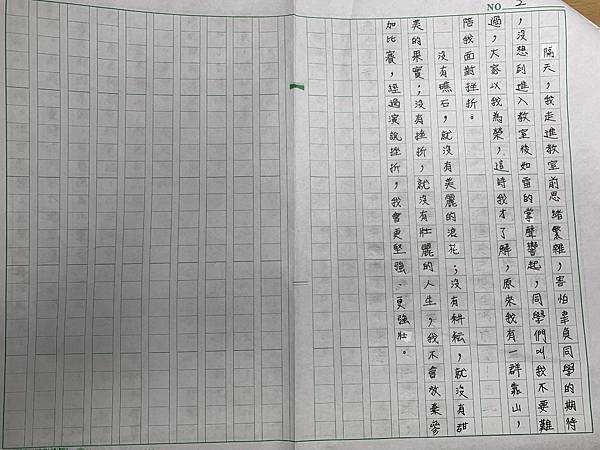 NO. 2
隔天，我走進教室前思緒繁雜，害怕辜負同學的期待
，沒想到進入教室後如雷的掌聲響起，同學們叫我不要難
過，大家以我為榮，這時我才了解，原來我有一群靠山，
陪我面對挫折。
沒有礁石，就沒有美麗的浪花；沒有耕耘，就沒有甜
美的果實；沒有挫折，就沒有壯麗的人生，我不會放棄參
加比賽，經過演說挫折，我會更堅強、更強壯。